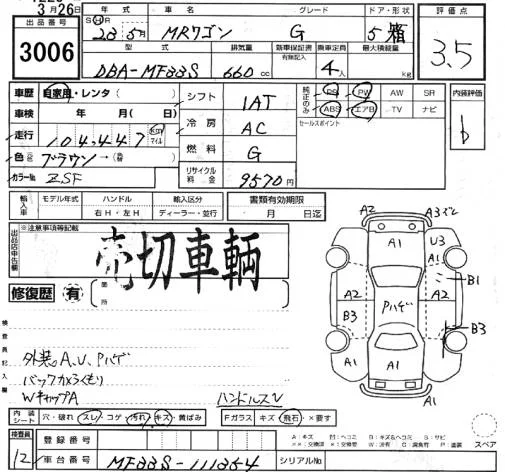 3月26日
出品番号 3006
年式 車名 グレード ドア・形状 評価点
S H 23 5月 MRワゴン G 5 箱 3.5
型式 排気量 新車保証書 有無記入 乗車定員 最大積載量
DBA-MF33S 660 cc 4人 kg
車歴 自家用・レンタ( ) シフト 1AT 純正のみ PS PW AW SR 内装評価
車検 年 月( 日) 冷房 AC ABS エアB TV ナビ b
走行 104,447 km マイル 燃料 G セールスポイント
色 ブラウン→(替)
カラーNo. ZSF リサイクル料金 9570円
輸入車 モデル年式 ハンドル 右H・左H 輸入区分 ディーラー・並行 書類有効期限 月 日迄
出品店申告欄 ※注意事項等記載
売切車輌
修復歴 有 箇所
A2 A3ズミ
A1 U3
A1 B1
A2 A2 A2
B3 Pハゲ B3
A1 A1 A2
A1
検査員記入欄
外装A、U、Pハゲ
バックカメラくもり
WキャップA ハンドルスレ
内装シート 穴・破れ スレ・コゲ 汚れ・キズ・黄ばみ Fガラス キズ・飛石・×要す
A:キズ U:ヘコミ B:キズ&ヘコミ S:サビ
××:交換済 ×:交換要 W:波有 C:腐食 P:塗装 スペア
検査員 12 登録番号
車台番号 MF33S-111354 シリアルNo